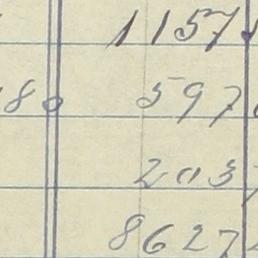 1157
80 597
203
8627